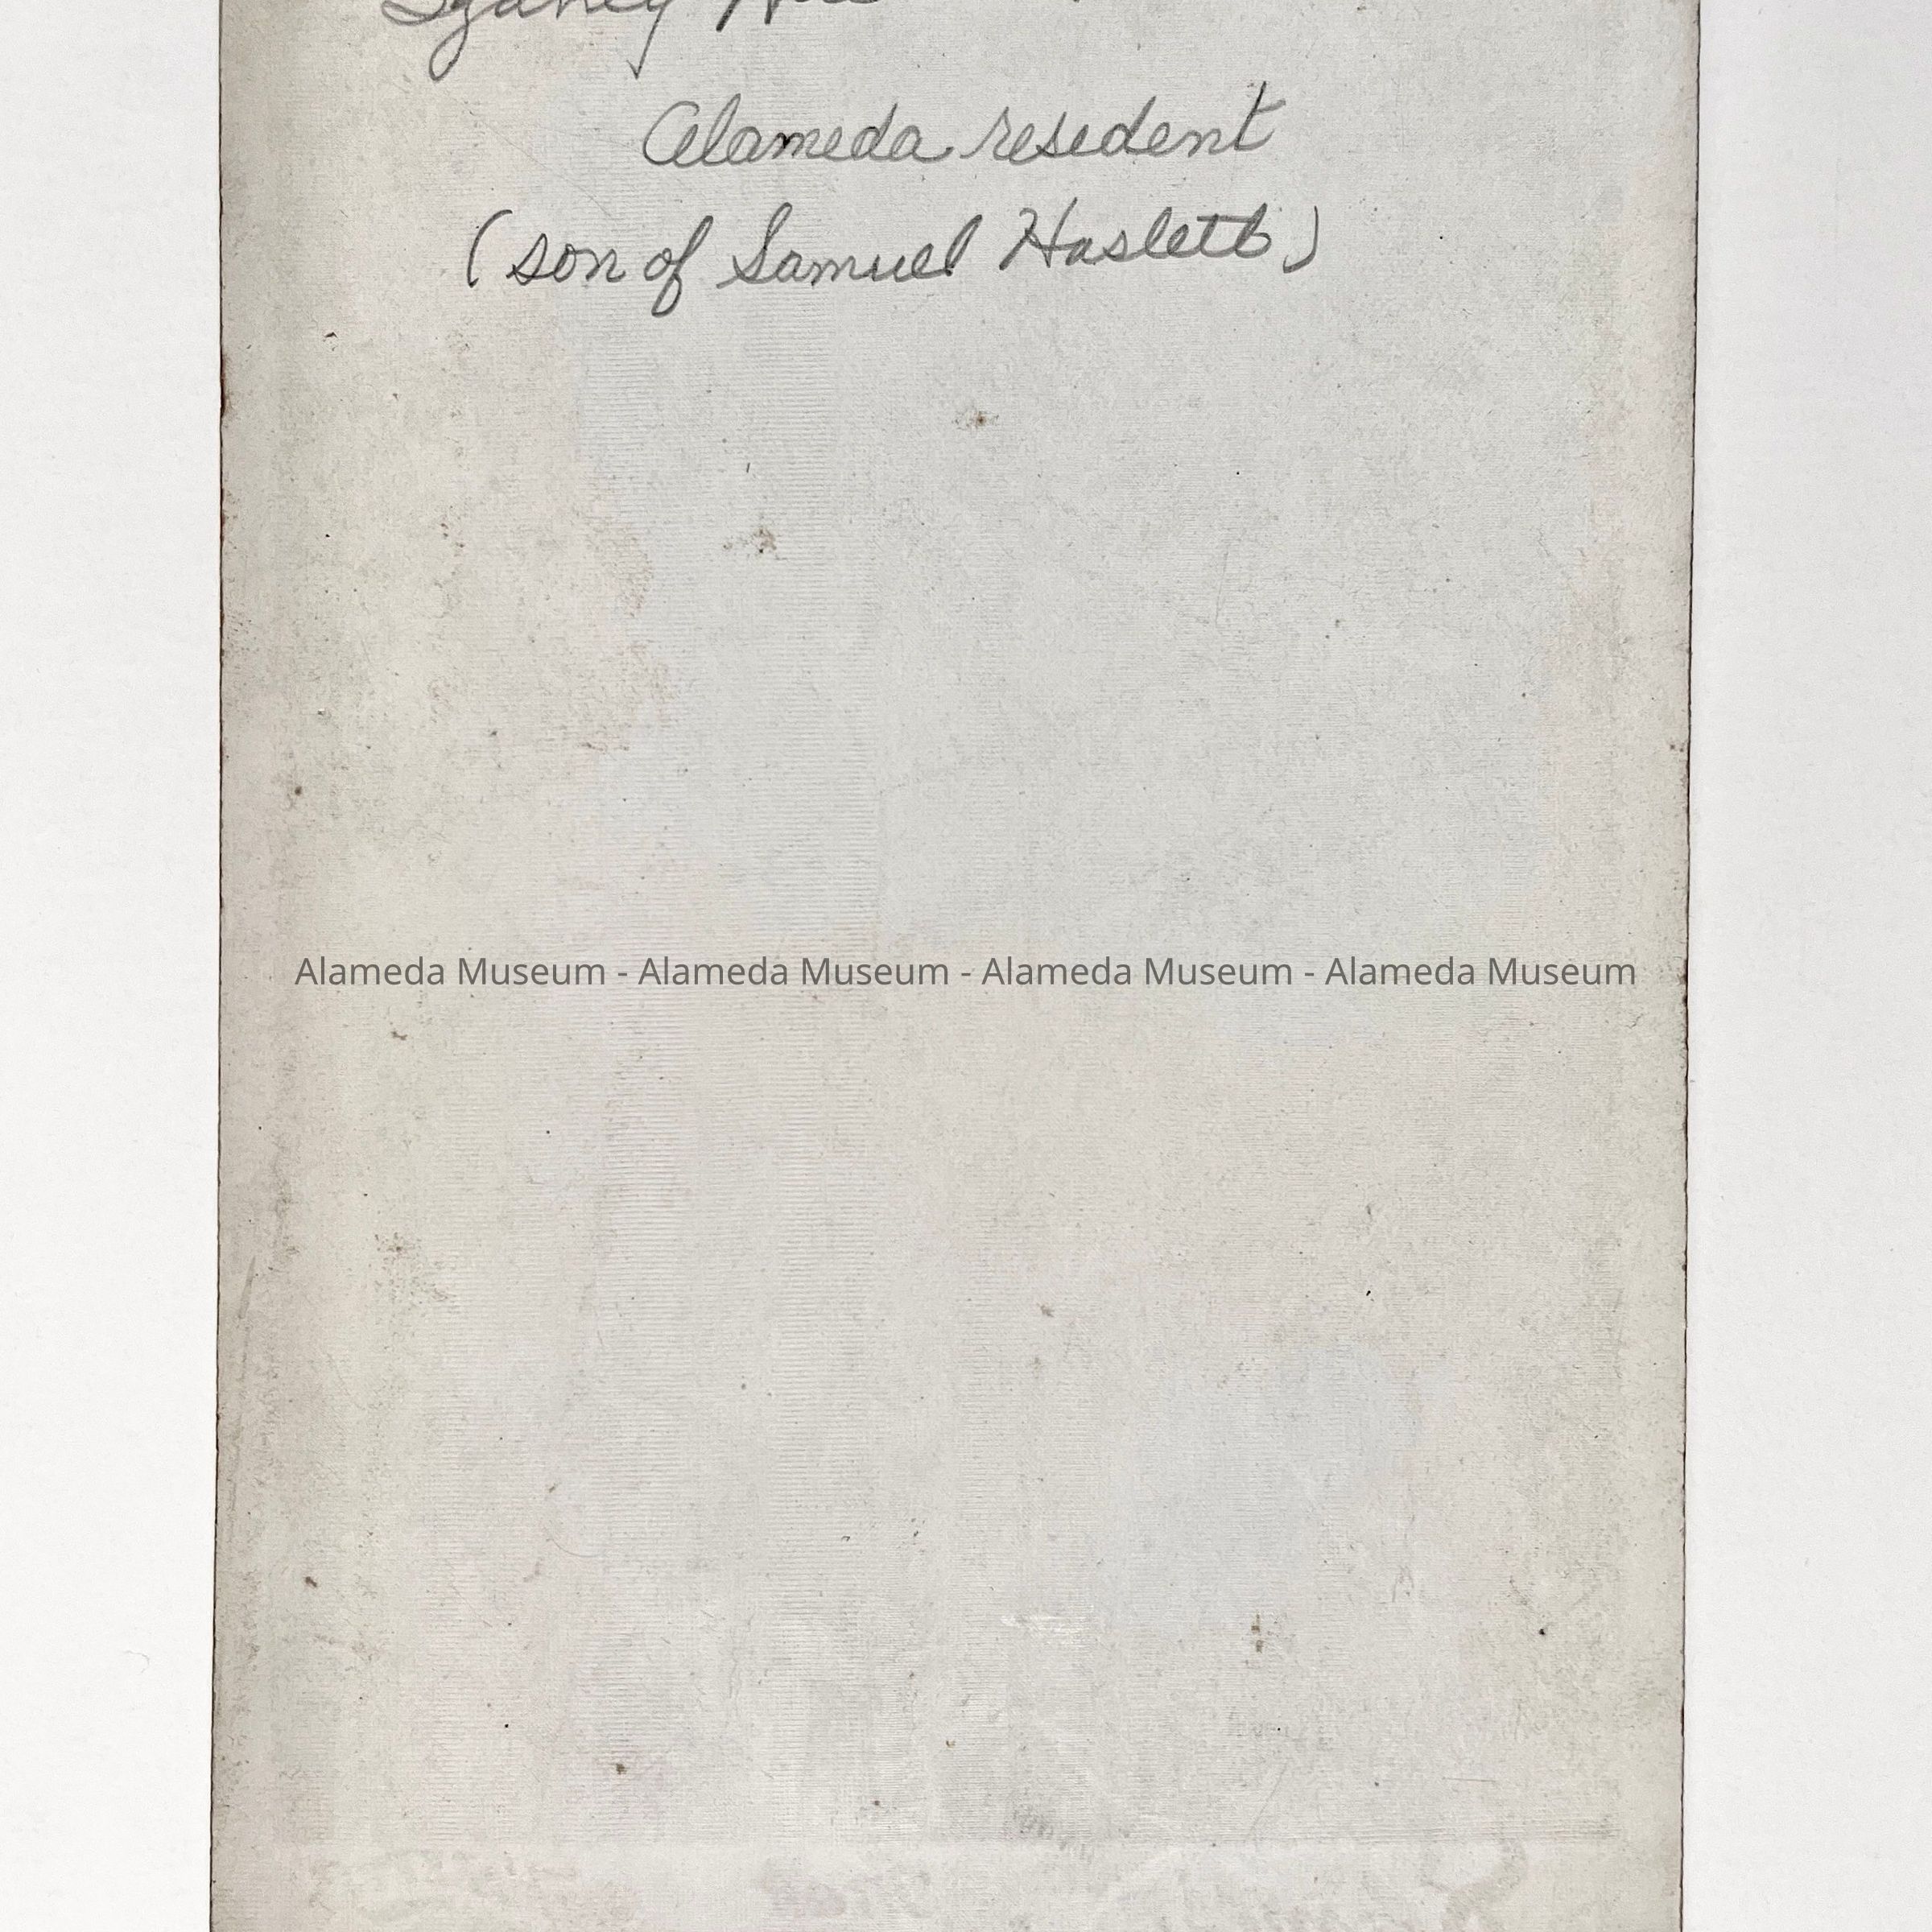 Sydney
Alameda resedent
(son of Samuel Haslett)
Alameda Museum - Alameda Museum - Alameda Museum - Alameda Museum